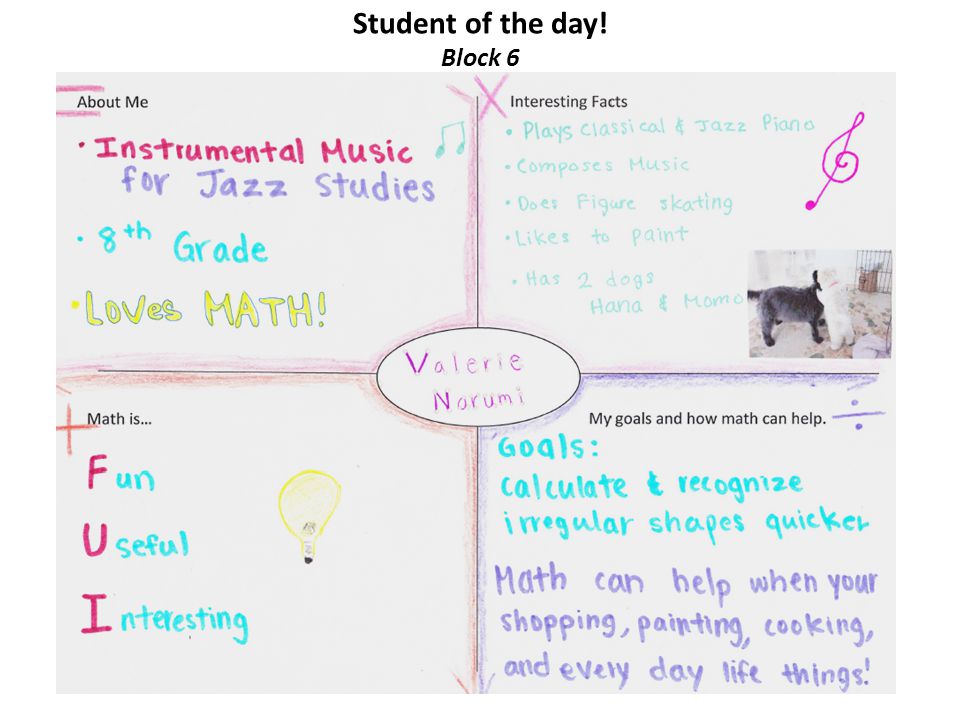 Student of the day!
Block 6
About Me
• Instrumental Music
for Jazz Studies
• 8th Grade
• Loves MATH!
Interesting Facts
• Plays Classical & Jazz Piano
• Composes Music
• Does Figure skating
• Likes to paint
• Has 2 dogs
Hana & Momo
Valerie
Narumi
Math is...
Fun
Useful
Interesting
My goals and how math can help.
Goals:
Calculate & recognize
irregular shapes quicker
Math can help when your
shopping, painting, cooking,
and every day life things!